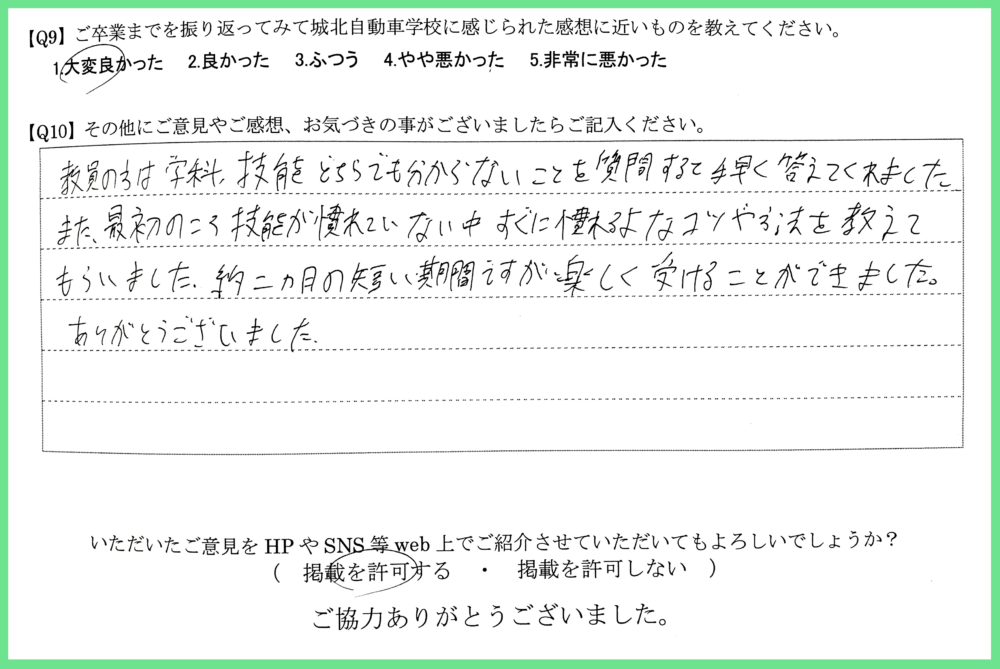 【Q9】ご卒業までを振り返ってみて城北自動車学校に感じられた感想に近いものを教えてください。
1.大変良かった 2.良かった 3.ふつう 4.やや悪かった 5.非常に悪かった
【Q10】その他にご意見やご感想、お気づきの事がございましたらご記入ください。
教員の方は学科、技能をどちらでも分からないことを質問するて手早く答えてくれました
また、最初のころ技能が慣れていない中すぐに慣れるよなコツや方法を教えて
もらいました、約二ヵ月の短い期間ですが楽しく受けることができました。
ありがとうございました.
いただいたご意見をHPやSNS等web上でご紹介させていただいてもよろしいでしょうか?
( 掲載を許可する ・ 掲載を許可しない )
ご協力ありがとうございました。